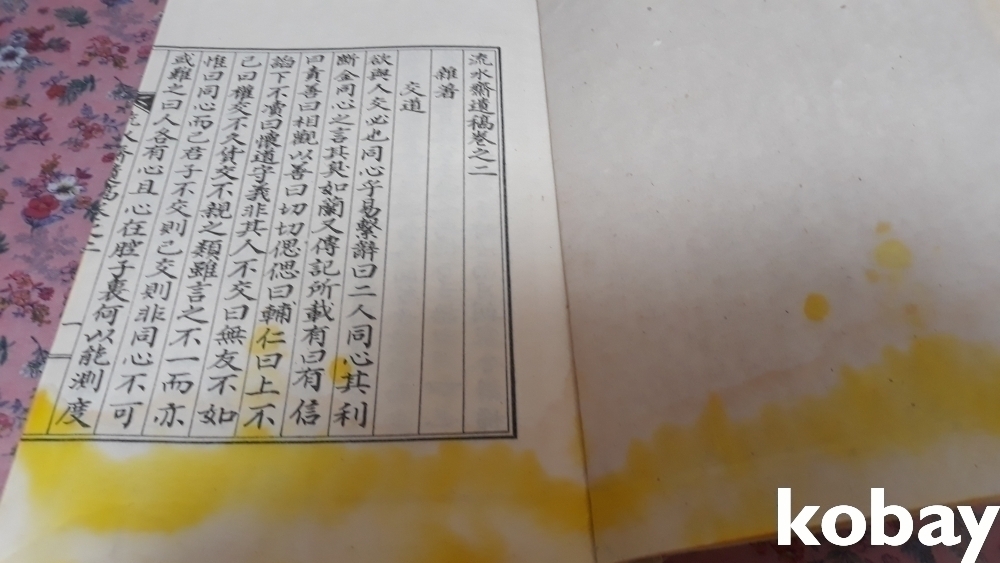 流水齋遺稿卷之二
雜著
交道
欲與人交必也同心乎易繫辭曰二人同心其利
斷金同心之言其臭如蘭又傳記所載有曰有信
曰責善曰相觀以善曰切切偲偲曰輔仁曰上不
諂下不瀆曰懷道守義非其人不交曰無友不如
己曰權交不久貨交不親之類雖言之不一而亦
惟曰同心而已君子不交則已交則非同心不可
或難之曰人各有心且心在腔子裏何以能測度
流水齋遺稿卷之二
一
kobay